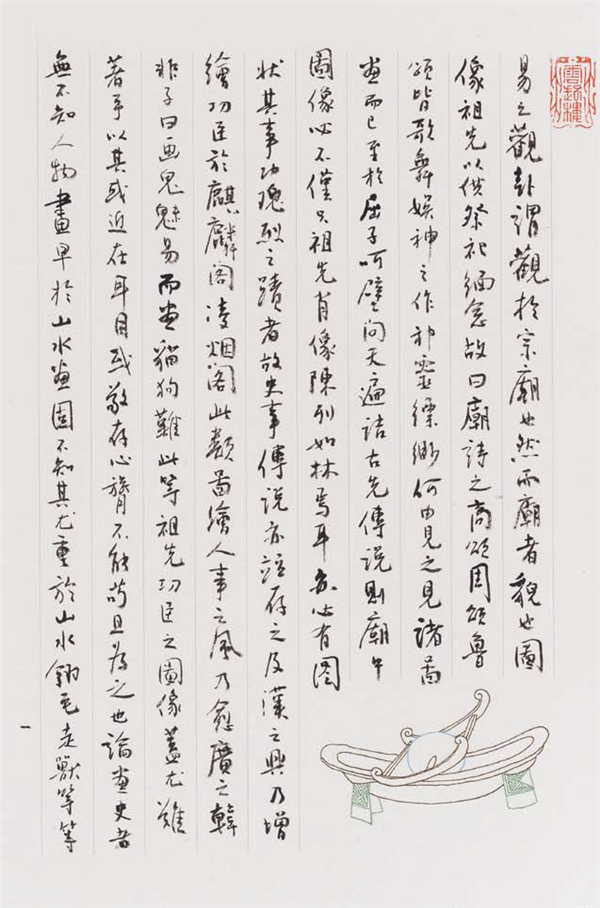 雲起樓
易之觀卦謂觀於宗廟也然而廟者貌也圖
像祖先以供祭祀緬念故曰廟詩之商頌周頌魯
頌皆歌舞娛神之作神靈縹緲何由見之見諸圖
畫而已至於屈子呵壁問天遍詰古先傳說則廟中
圖像必不僅只祖先肖像陳列如林焉耳亦必有圖
狀其事功瑰烈之蹟者故史事傳說亦竝存之及漢之興乃增
繪功臣於麒麟閣凌烟閣此類圖繪人事之風乃愈廣之韓
非子曰画鬼魅易而畫貓狗難此等祖先功臣之圖像蓋尤難
著手以其或近在耳目或敬存心膂不能苟且為之也論畫史者
無不知人物畫早於山水畫固不知其尤重於山水翎毛走獸等等
一